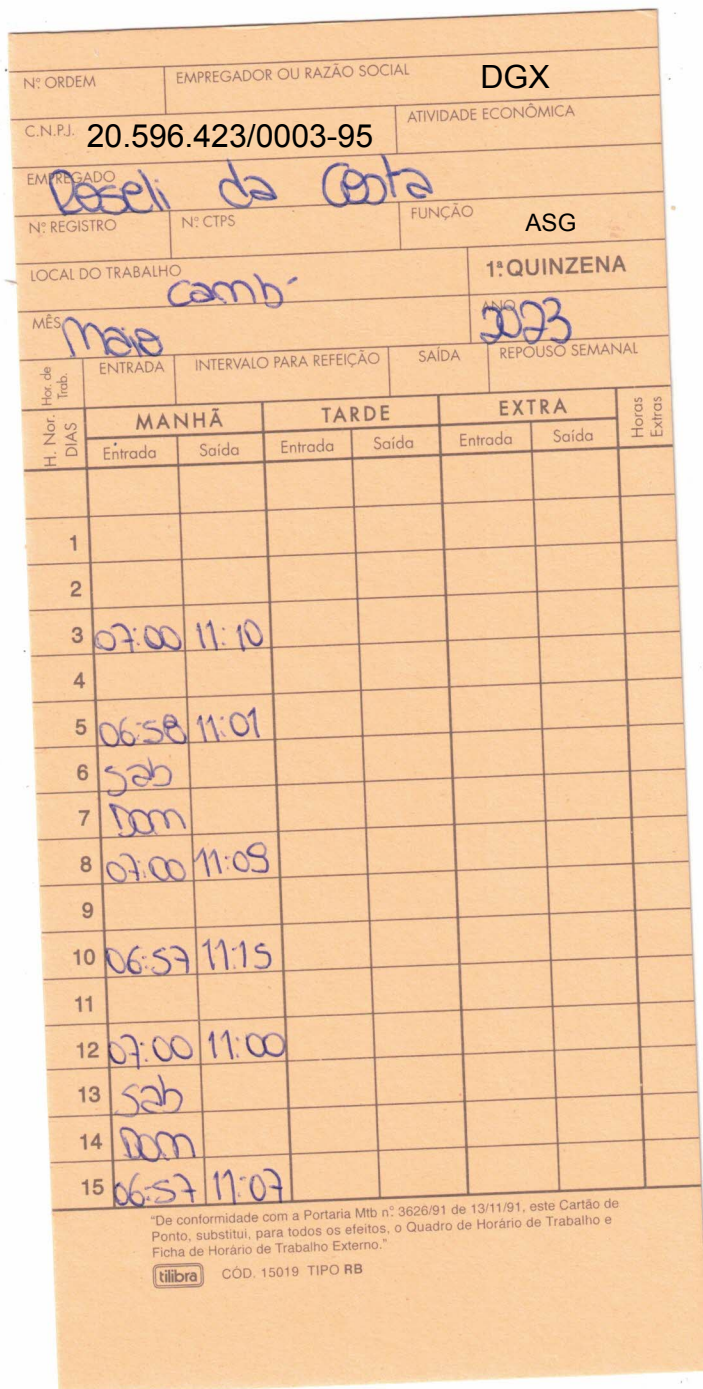 Nº ORDEM EMPREGADOR OU RAZÃO SOCIAL DGX
C.N.P.J. 20.596.423/0003-95 ATIVIDADE ECONÔMICA
EMPREGADO Roseli da Costa
Nº REGISTRO Nº CTPS FUNÇÃO ASG
LOCAL DO TRABALHO Camb 1ª QUINZENA
MÊS Maio ANO 2023
Hor. de Trab. ENTRADA INTERVALO PARA REFEIÇÃO SAÍDA REPOUSO SEMANAL
H. Nor. DIAS MANHÃ TARDE EXTRA Horas Extras
Entrada Saída Entrada Saída Entrada Saída
1
2
3 07:00 11:10
4
5 06:58 11:01
6 Sab
7 Dom
8 07:00 11:09
9
10 06:57 11:15
11
12 07:00 11:00
13 Sab
14 Dom
15 06:57 11:07
"De conformidade com a Portaria Mtb nº 3626/91 de 13/11/91, este Cartão de
Ponto, substitui, para todos os efeitos, o Quadro de Horário de Trabalho e
Ficha de Horário de Trabalho Externo."
tilibra CÓD. 15019 TIPO RB